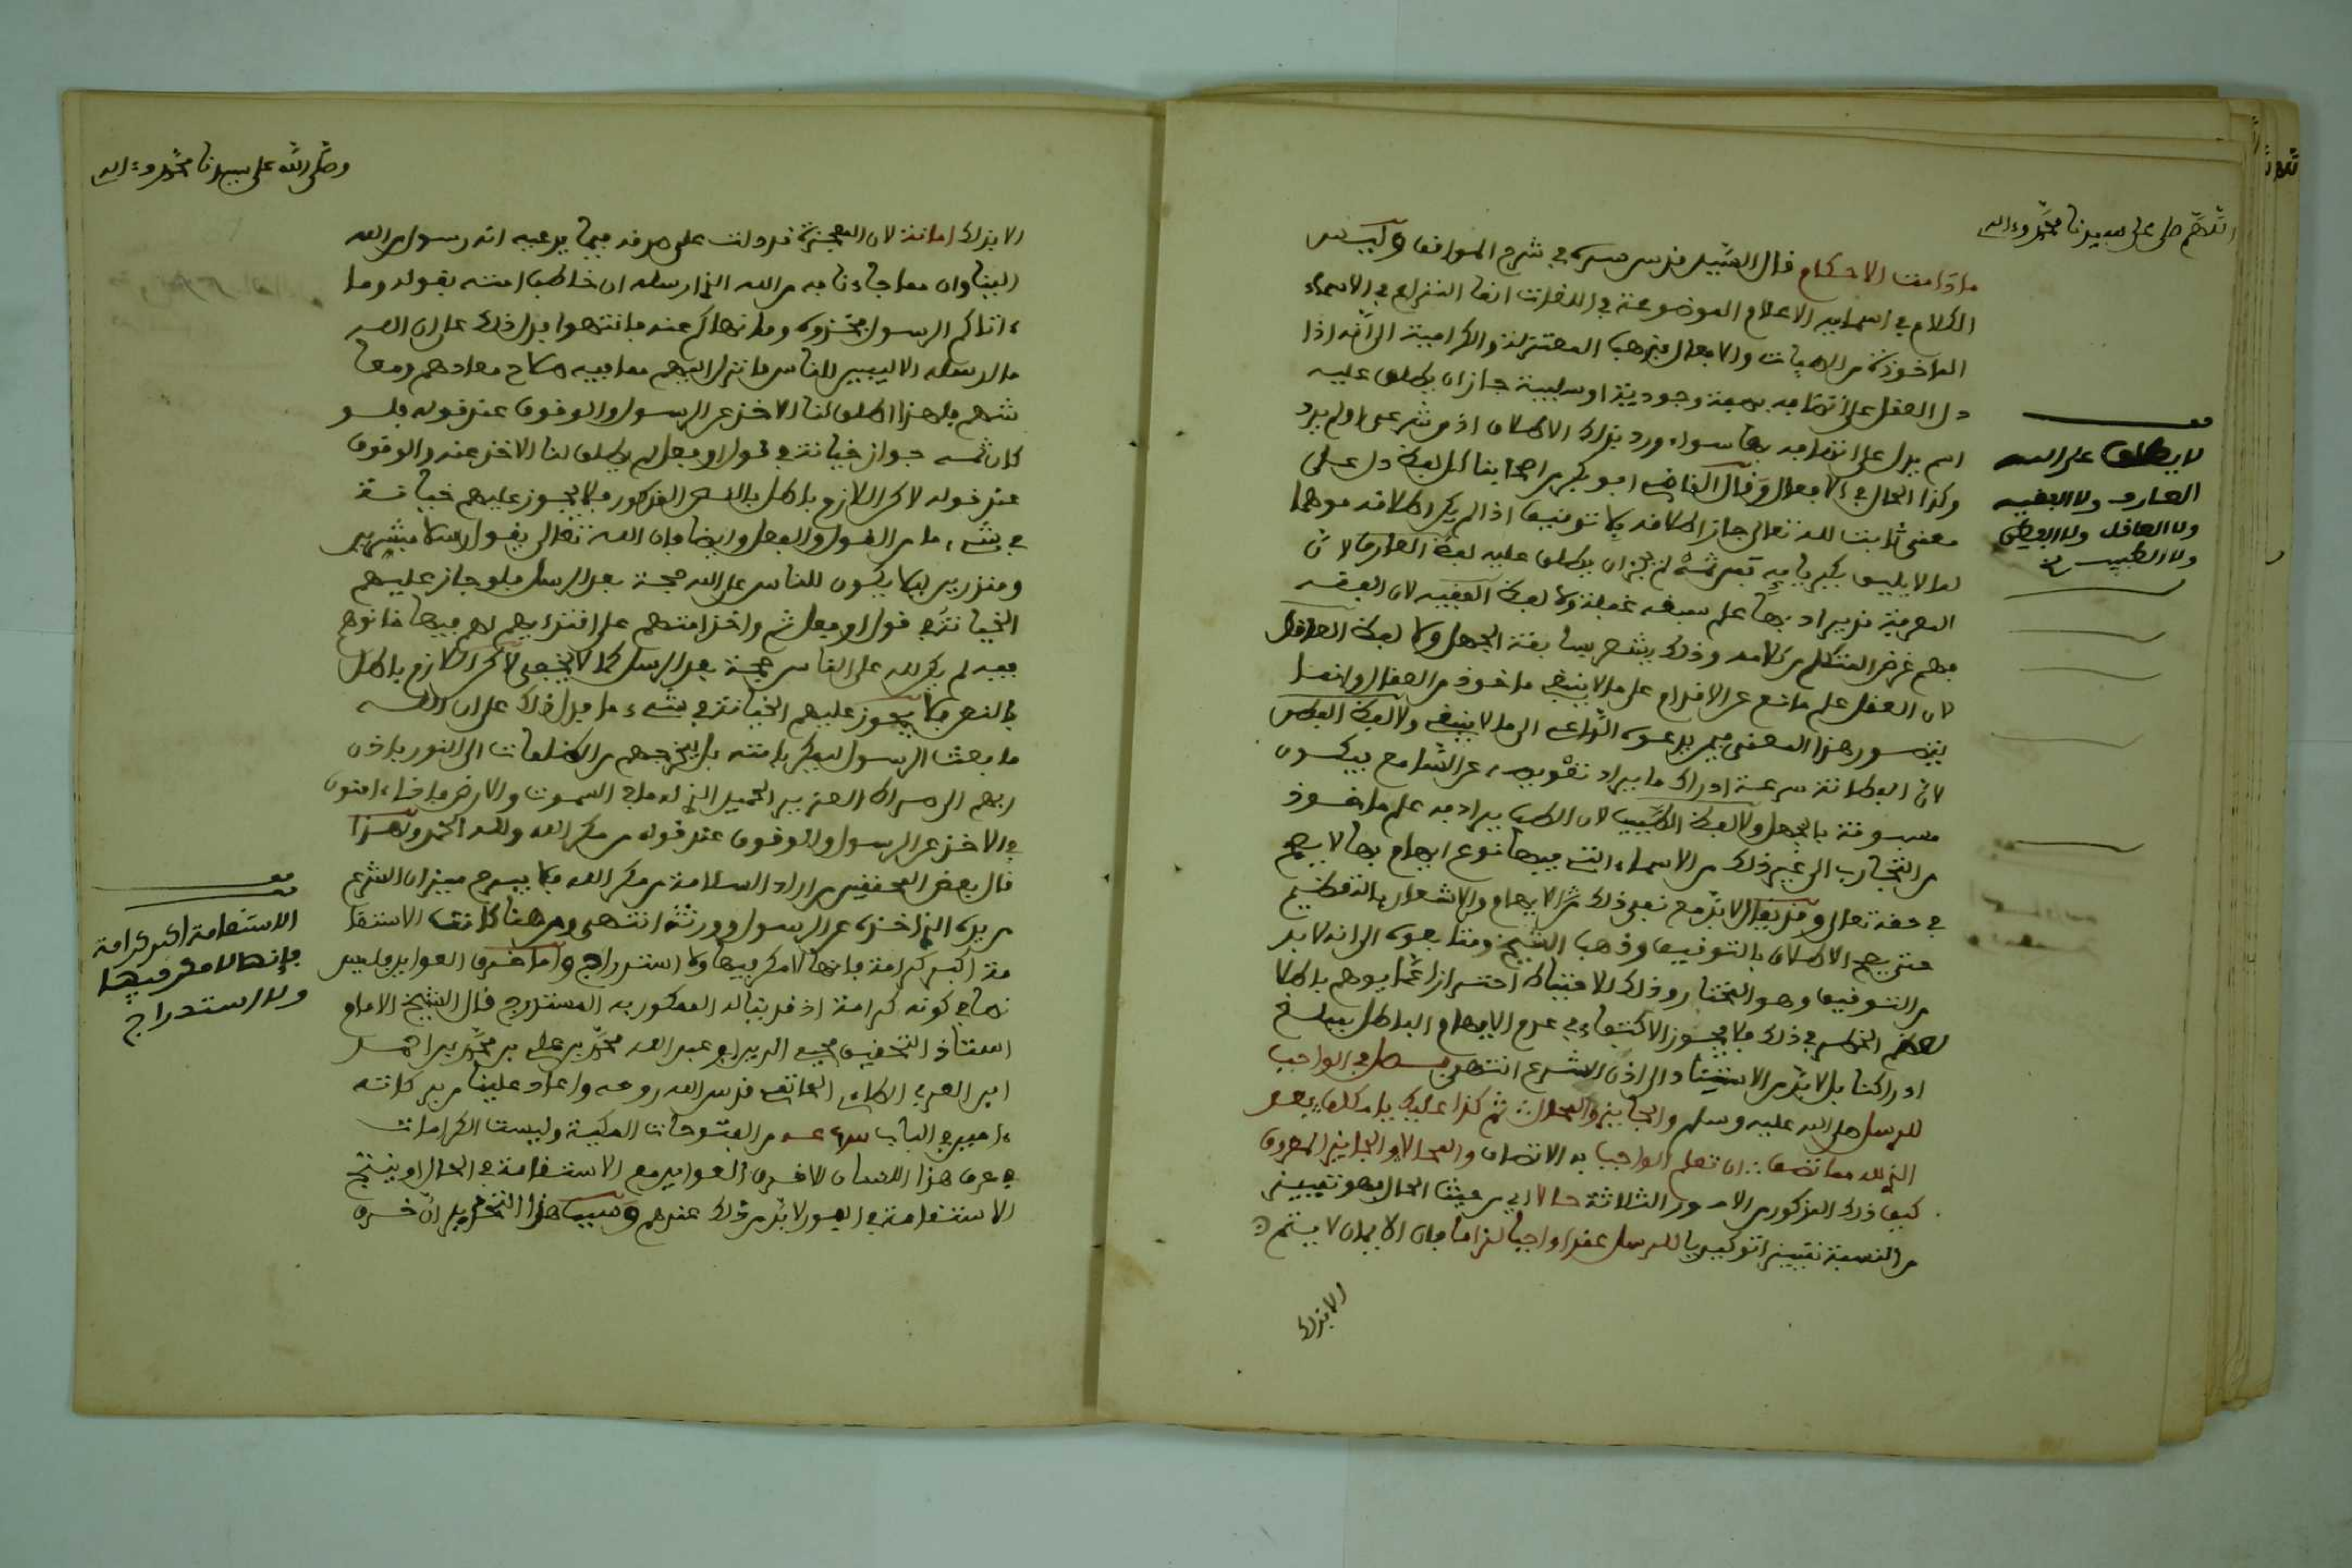 اللهم صل على سيدنا محمد وءاله
ما دامت الاحكام قال السيد قدس سره في شرح المواقف وليس
الكلام في اسمايه الاعلام الموضوعة في اللغات انما النزاع في الاسماء
الماخوذة من الصفات والافعال فذهب المعتزلة والكرامية الى انه اذا
دل العقل على اتصافه بصفة وجودية او سلبية جاز ان يطلق عليه
اسم يدل على اتصافه بها سواء ورد بذلك الاطلاق اذن شرعي او لم يرد
وكذا الحال في الافعال وقال القاضي ابو بكر من اصحابنا كل لفظ دل على
معنى ثابت لله تعالى جاز اطلاقه بلا توقيف اذا لم يكن اطلاقه موهما
لما لا يليق بكبريايه فمن ثمه لم يجز ان يطلق عليه لفظ العارف لان
المعرفة قد يراد بها علم سبقه غفلة ولا لفظ الفقيه لان الفقه
فهم غرض المتكلم من كلامه وذلك يشعر بسابقة الجهل ولا لفظ العاقل
لان العقل علم مانع عن الاقدام على ما لا ينبغي ماخوذ من العقال وانما
يتصور هذا المعنى فيمن يدعوه الداعي الى ما لا ينبغي ولا لفظ الفطن
لان الفطانة سرعة ادراك ما يراد تفهيمه عن السامع فيكون
مسبوقة بالجهل ولا لفظ الطبيب لان الطب يراد به علم ماخوذ
من التجارب الى غير ذلك من الاسماء التي فيها نوع ايهام بما لا يصح
في حقه تعالى وقد يقال لا بد مع نفي ذلك من الايهام والاشعار بالتعظيم
حتى يصح الاطلاق بلا توقيف وذهب الشيخ ومتابعوه الى انه لا بد
من التوقيف وهو المختار وذلك للاحتياط احترازا عما يوهم باطلا
لعظم الخطر في ذلك فلا يجوز الاكتفاء في عدم الايهام الباطل بمبلغ
ادراكنا بل لا بد من الاستناد الى اذن الشرع انتهى فصل في الواجب
للرسل صلى الله عليه وسلم والجايز والمحال ثم كذا عليك يا مكلف يعد
ان تعلم الواجب به الاتصاف والمحال والجايز المعروف
كيف ذلك المذكور من الامور الثلاثة حالا اي من حيث الحال فهو تمييز
من النسبة تمييزا توكيديا للرسل عقدا واجبا لزاما فان الايمان لا يتم
الا بذلك
لا يطلق على الله
العارف ولا الفقيه
ولا العاقل ولا الفطن
ولا الطبيب
وصلى الله على سيدنا محمد وءاله
الا بذلك امانة لان المعجزة قد دلت على صدقه فيما يدعيه انه رسول من الله
الينا وان مما جاءنا به من الله الذي ارسله ان خاطب امته بقوله وما
ءاتاكم الرسول فخذوه وما نهاكم عنه فانتهوا فدل ذلك على ان الله
ما ارسله الا ليبين للناس ما نزل اليهم مما فيه صلاح معادهم ومعا
شهم فلهذا اطلق لنا الاخذ عن الرسول والوقوف عند قوله فلو
كان ثمه جواز خيانة في قول او فعل لم يطلق لنا الاخذ عنه والوقوف
عند قوله لاكن اللازم باطل بالنص المذكور فلا يجوز عليهم خيانة
في شيء ما من القول والفعل وايضا فان الله تعالى يقول رسلا مبشرين
ومنذرين ليلا يكون للناس على الله حجة بعد الرسل فلو جاز عليهم
الخيانة في قول او فعل ثم واخذ امتهم على اقتدايهم لهم فيما خانوهم
فيه لم يكن لله على الناس حجة بعد الرسل كما لا يخفى لاكن اللازم باطل
بالنص فلا يجوز عليهم الخيانة في شيء ما فدل ذلك على ان الله
ما بعث الرسول ليمكر بامته بل ليخرجهم من الظلمات الى النور باذن
ربهم الى صراط العزيز الحميد الذي له ما في السموت والارض
في الاخذ عن الرسول والوقوف عند قوله من مكر الله ولله الحمد ولهذا
قال بعض المحققين من اراد السلامة من مكر الله فلا يسرح ميزان الشرع
من يده الذي اخذه عن الرسول وورثته انتهى ومن هنا كانت الاستقا
مة اكبر كرامة فانها لا مكر فيها ولا استدراج واما خرق العوايد فليس
نصا في كونه كرامة اذ قد يناله الممكور به المستدرج قال الشيخ الامام
استاذ التحقيق محيي الدين ابو عبد الله محمد بن علي بن محمد بن احمد
ابن العربي الطاءي الحاتمي قدس الله روحه واعاد علينا من بركاته
ءامين في الباب من الفتوحات المكية وليست الكرامات
في عرف هذا اللسان الا خرق العوايد مع الاستقامة في الحال او ينتج
الاستقامة في الفور لا بد من ذلك عندهم وسبب هذا التحديد ان خرق
الاستقامة اكبر كرامة
فانها لا مكر فيها
ولا استدراج